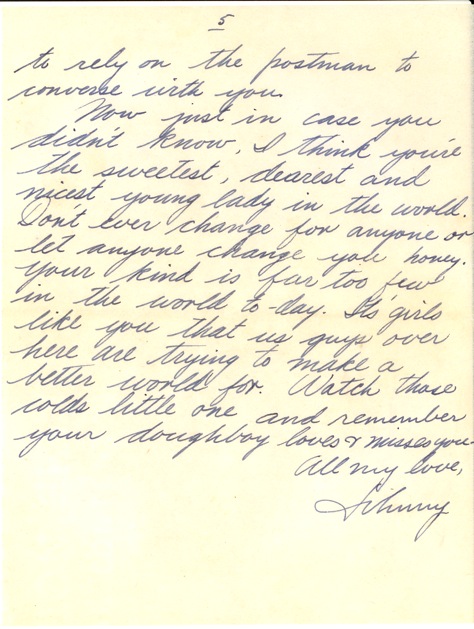 5
to rely on the postman to
converse with you.
Now just in case you
didn't know, I think you're
the sweetest, dearest and
nicest young lady in the world.
Don't ever change for anyone or
let anyone change you honey.
Your kind is far too few
in the world to-day. Its girls
like you that us guys over
here are trying to make a
better world for. Watch those
colds little one and remember
your doughboy loves & misses you.
All my love,
Johnny